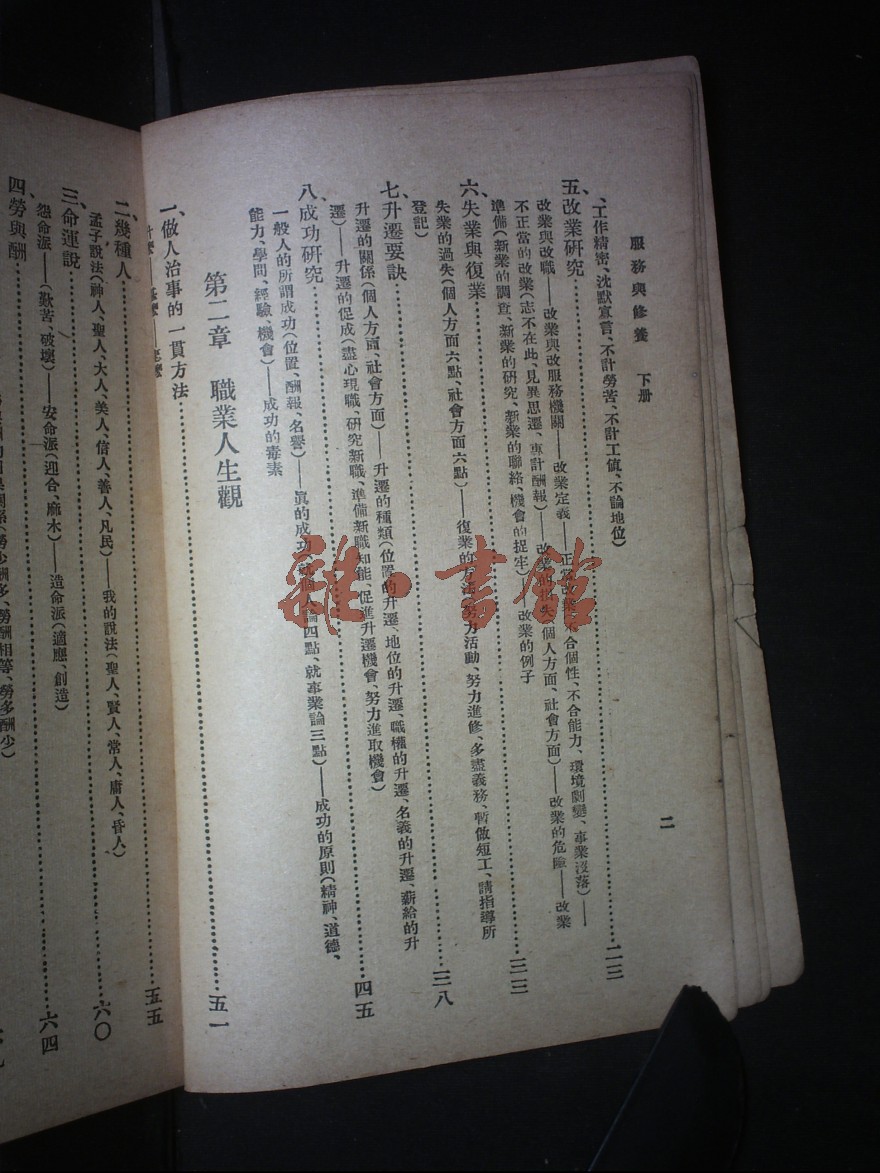 服務與修養 下册
二
、工作精密、沈默寡言、不計勞苦、不計工値、不論地位)
五、改業硏究……二三
改業與改職——改業與改服務機關——改業定義——正當改業(不合個性、不合能力、環境劇變、事業沒落)——
不正當的改業(志不在此、見異思遷、專計酬報)——改業的損失(個人方面、社會方面)——改業的危險——改業
準備(新業的調查、新業的硏究、新業的聯絡、機會的捉牢)——改業的例子
六、失業與復業……三三
失業的過失(個人方面六點、社會方面六點)——復業的方法(努力活動、努力進修、多盡義務、暫做短工、請指導所
登記)
七、升遷要訣……三八
升遷的關係(個人方面、社會方面)——升遷的種類(位置的升遷、地位的升遷、職權的升遷、名義的升遷、薪給的升
遷)——升遷的促成(盡心現職、硏究新職、準備新職知能、促進升遷機會、努力進取機會)
八、成功硏究……四五
一般人的所謂成功(位置、酬報、名譽)——眞的成功(就個人論四點、就事業論三點)——成功的原則(精神、道德、
能力、學問、經驗、機會)——成功的毒素
第二章 職業人生觀……五一
一、做人治事的一貫方法……五五
什麽——甚麽——怎麽
二、幾種人……六〇
孟子說法(神人、聖人、大人、美人、信人、善人、凡民)——我的說法(聖人、賢人、常人、庸人、昏人)
三、命運說……六四
怨命派(歎苦、破壞)——安命派(迎合、麻木)——造命派(適應、創造)
四、勞與酬……
係(勞少酬多、勞酬相等、勞多酬少)
雜·書館